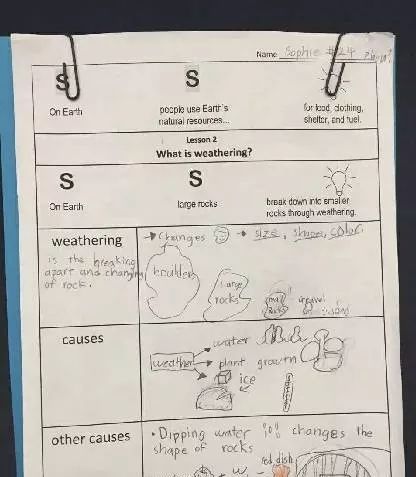 Name Sophie #24
S S
On Earth people use Earth's natural resources... for food, clothing, shelter, and fuel.
Lesson 2
What is weathering?
S S
On Earth large rocks break down into smaller rocks through weathering.
weathering
is the breaking
apart and changing
of rock.
→ changes → size, shape, color
boulder
large
rocks
small
rocks
gravel
causes
weather
water
plant growth
ice
other causes
• Dipping water changes the
shape of rocks
red dish